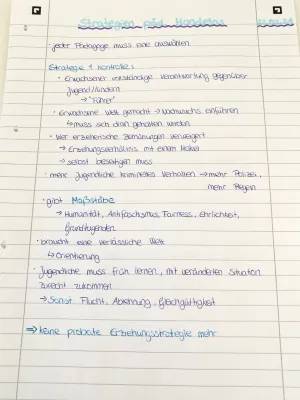 Strategien päd. Handelns
· jeder Pädagoge muss eine auswählen
Strategie 1 Kontrolle:
· Erwachsener vollständige Verantwortung gegenüber
Jugend/Kindern
→ "Führer"
· Erwachsene Welt gemacht → Nachwuchs einführen
↳ muss sich dran gehalten werden
· Wer erzieherische Bemühungen verweigert
→ Erziehungsverhältnis mit einem Makel
→ selbst beseitigen muss
· mehr Jugendliche kriminelles Verhalten → mehr Polizei,
mehr Regeln
· gibt Maßstäbe
→ Humanität, Antifaschismus, Fairness, Ehrlichkeit,
Grundtugenden
· braucht eine verlässliche Welt
↳ Orientierung
· Jugendliche muss früh lernen, mit veränderten Situation
zurecht zukommen
→ Sonst Flucht, Ablehnung, Gleichgültigkeit
⇒ keine probate Erziehungsstrategie mehr